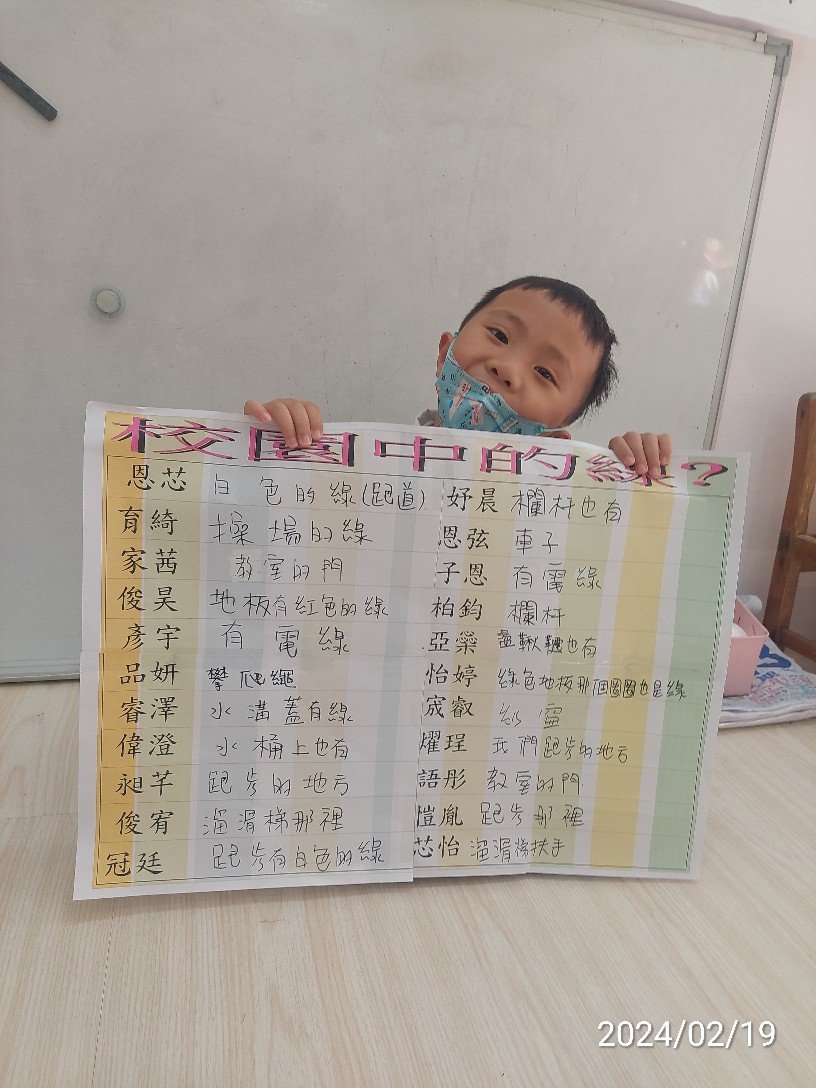 校園中的線?
恩芯 白色的線(跑道)
育綺 操場的線
家茜 教室的門
俊昊 地板有紅色的線
彥宇 有電線
品妍 攀爬繩
睿澤 水溝蓋有線
偉澄 水桶上也有
昶芊 跑步的地方
俊宥 溜滑梯那裡
冠廷 跑步有白色的線
妤晨 欄杆也有
恩弦 車子
子恩 有電線
柏鈞 欄杆
亞藥 盪鞦韆也有
怡婷 綠色地板那個圈圈也是線
宬叡 紗窗
燿珵 我們跑步的地方
語彤 教室的門
愷胤 跑步那裡
芯怡 溜滑梯扶手
2024/02/19